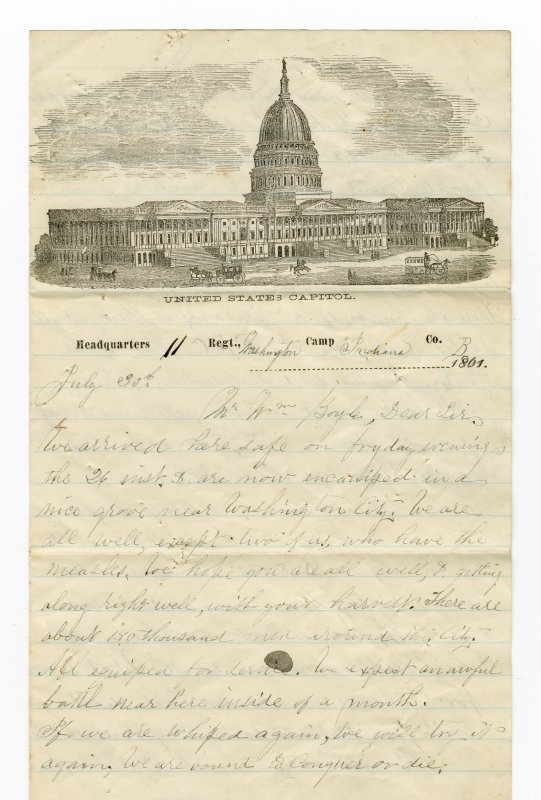 UNITED STATES CAPITOL.
Headquarters 11 Regt., Washington Camp Indiana Co. B
1861.
July 30th
Mr. Wm Gogle, Dear Sir,
We arrived here safe on fryday evening,
the 26 inst. & are now incamped in a
nice grove near Washington City. We are
all well, except two of us, who have the
measles. We hope you are all well, & getting
along right well, with your harvest. There are
about thousand men around this City.
All equiped for . We expect an awful
batll near here inside of a month.
If we are whiped again, we will try it
again, We are bound to Conquer or die.